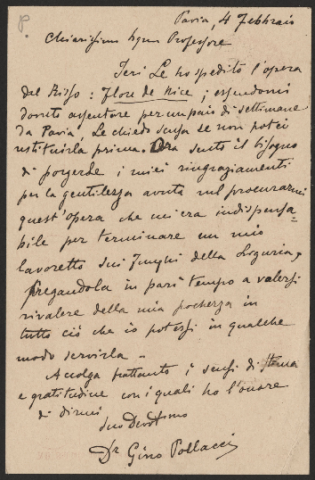 Pavia, 4 Febbraio
Chiarissimo Signor Professore
Ieri Le ho spedito l'opera
del Risso: Flore de Nice; essendomi
dovuto assentare per un paio di settimane
da Pavia, Le chiedo scusa se non potei
restituirla prima. Ora sento il bisogno
di porgerle i miei ringraziamenti
per la gentilezza avuta nel procurarmi
quest'opera che mi era indispensa-
bile per terminare un mio
lavoretto sui funghi della Liguria,
pregandola in pari tempo a valersi
della mia pochezza in
tutto ciò che io potessi in qualche
modo servirla.
Accolga frattanto i sensi di stima
e gratitudine con i quali ho l'onore
di dirmi
Suo Devotmo
Dr Gino Pollacci